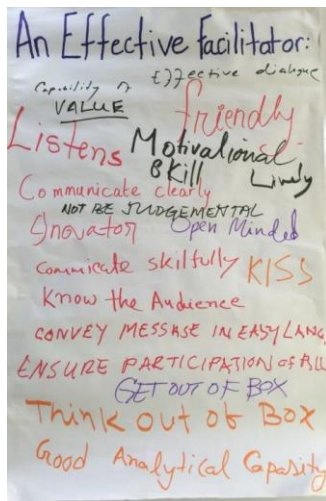 An Effective Facilitator:
Effective dialogue
Capability of
VALUE
friendly
Listens
Motivational
Skill
Lively
Communicate clearly
NOT BE JUDGEMENTAL
Inovator Open Minded
Comunicate skilfully KISS
Know the Audience
CONVEY MESSASE IN EASY LANG
ENSURE PARTICIPATION of ALL
GET OUT OF BOX
Think out of Box
Good Analytical Capasity